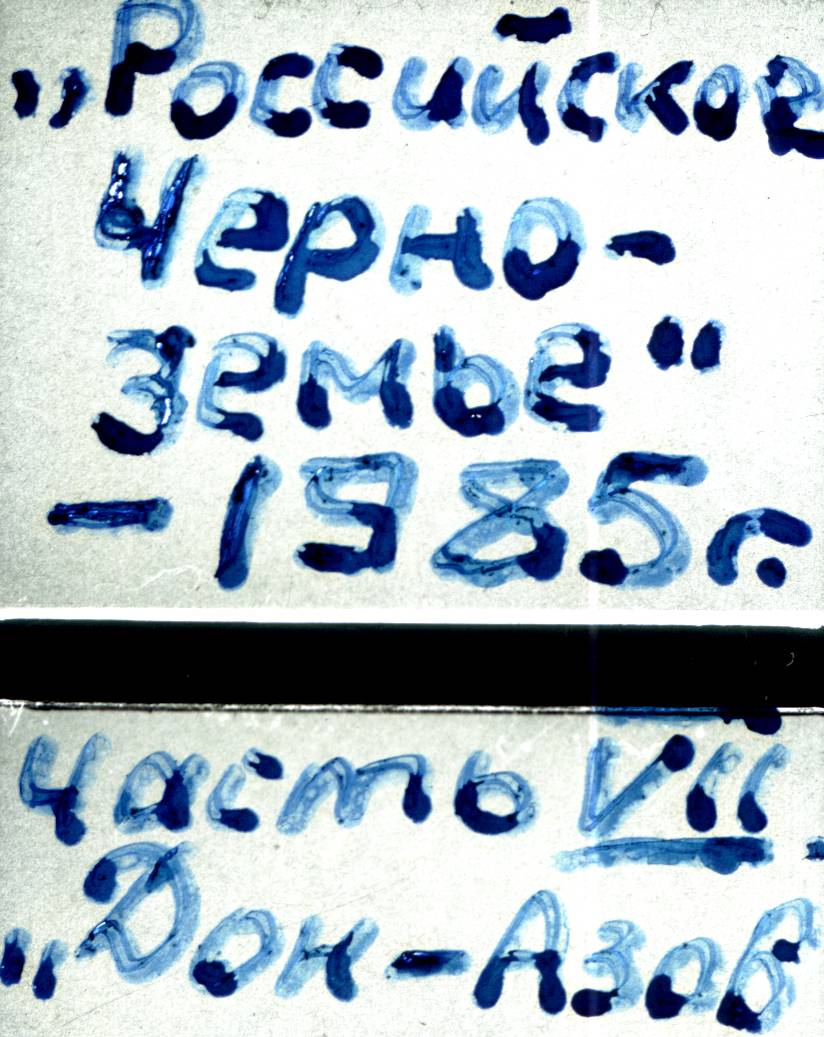 „Российское
Черно-
земье"
- 1985г.
Часть VII
„Дон-Азов